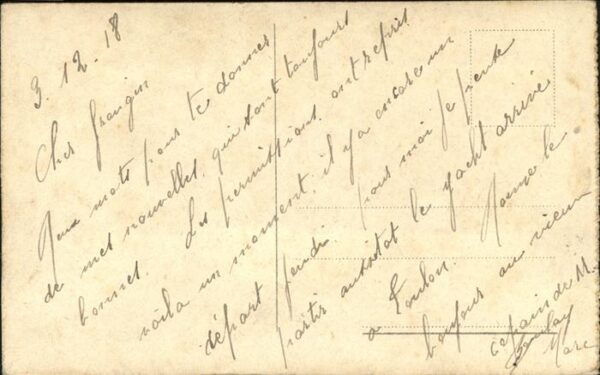 3.12.18
Cher frangin
Deux mots pour te donner
de mes nouvelles, qui sont toujours
bonnes. Les permissions ont repris
voilà un moment, il y a encore un
départ jeudi. pour moi je pense
partir aussitôt le yacht arrivé
à Toulon. Donne le
bonjour au vieux
copain de M.
Marc